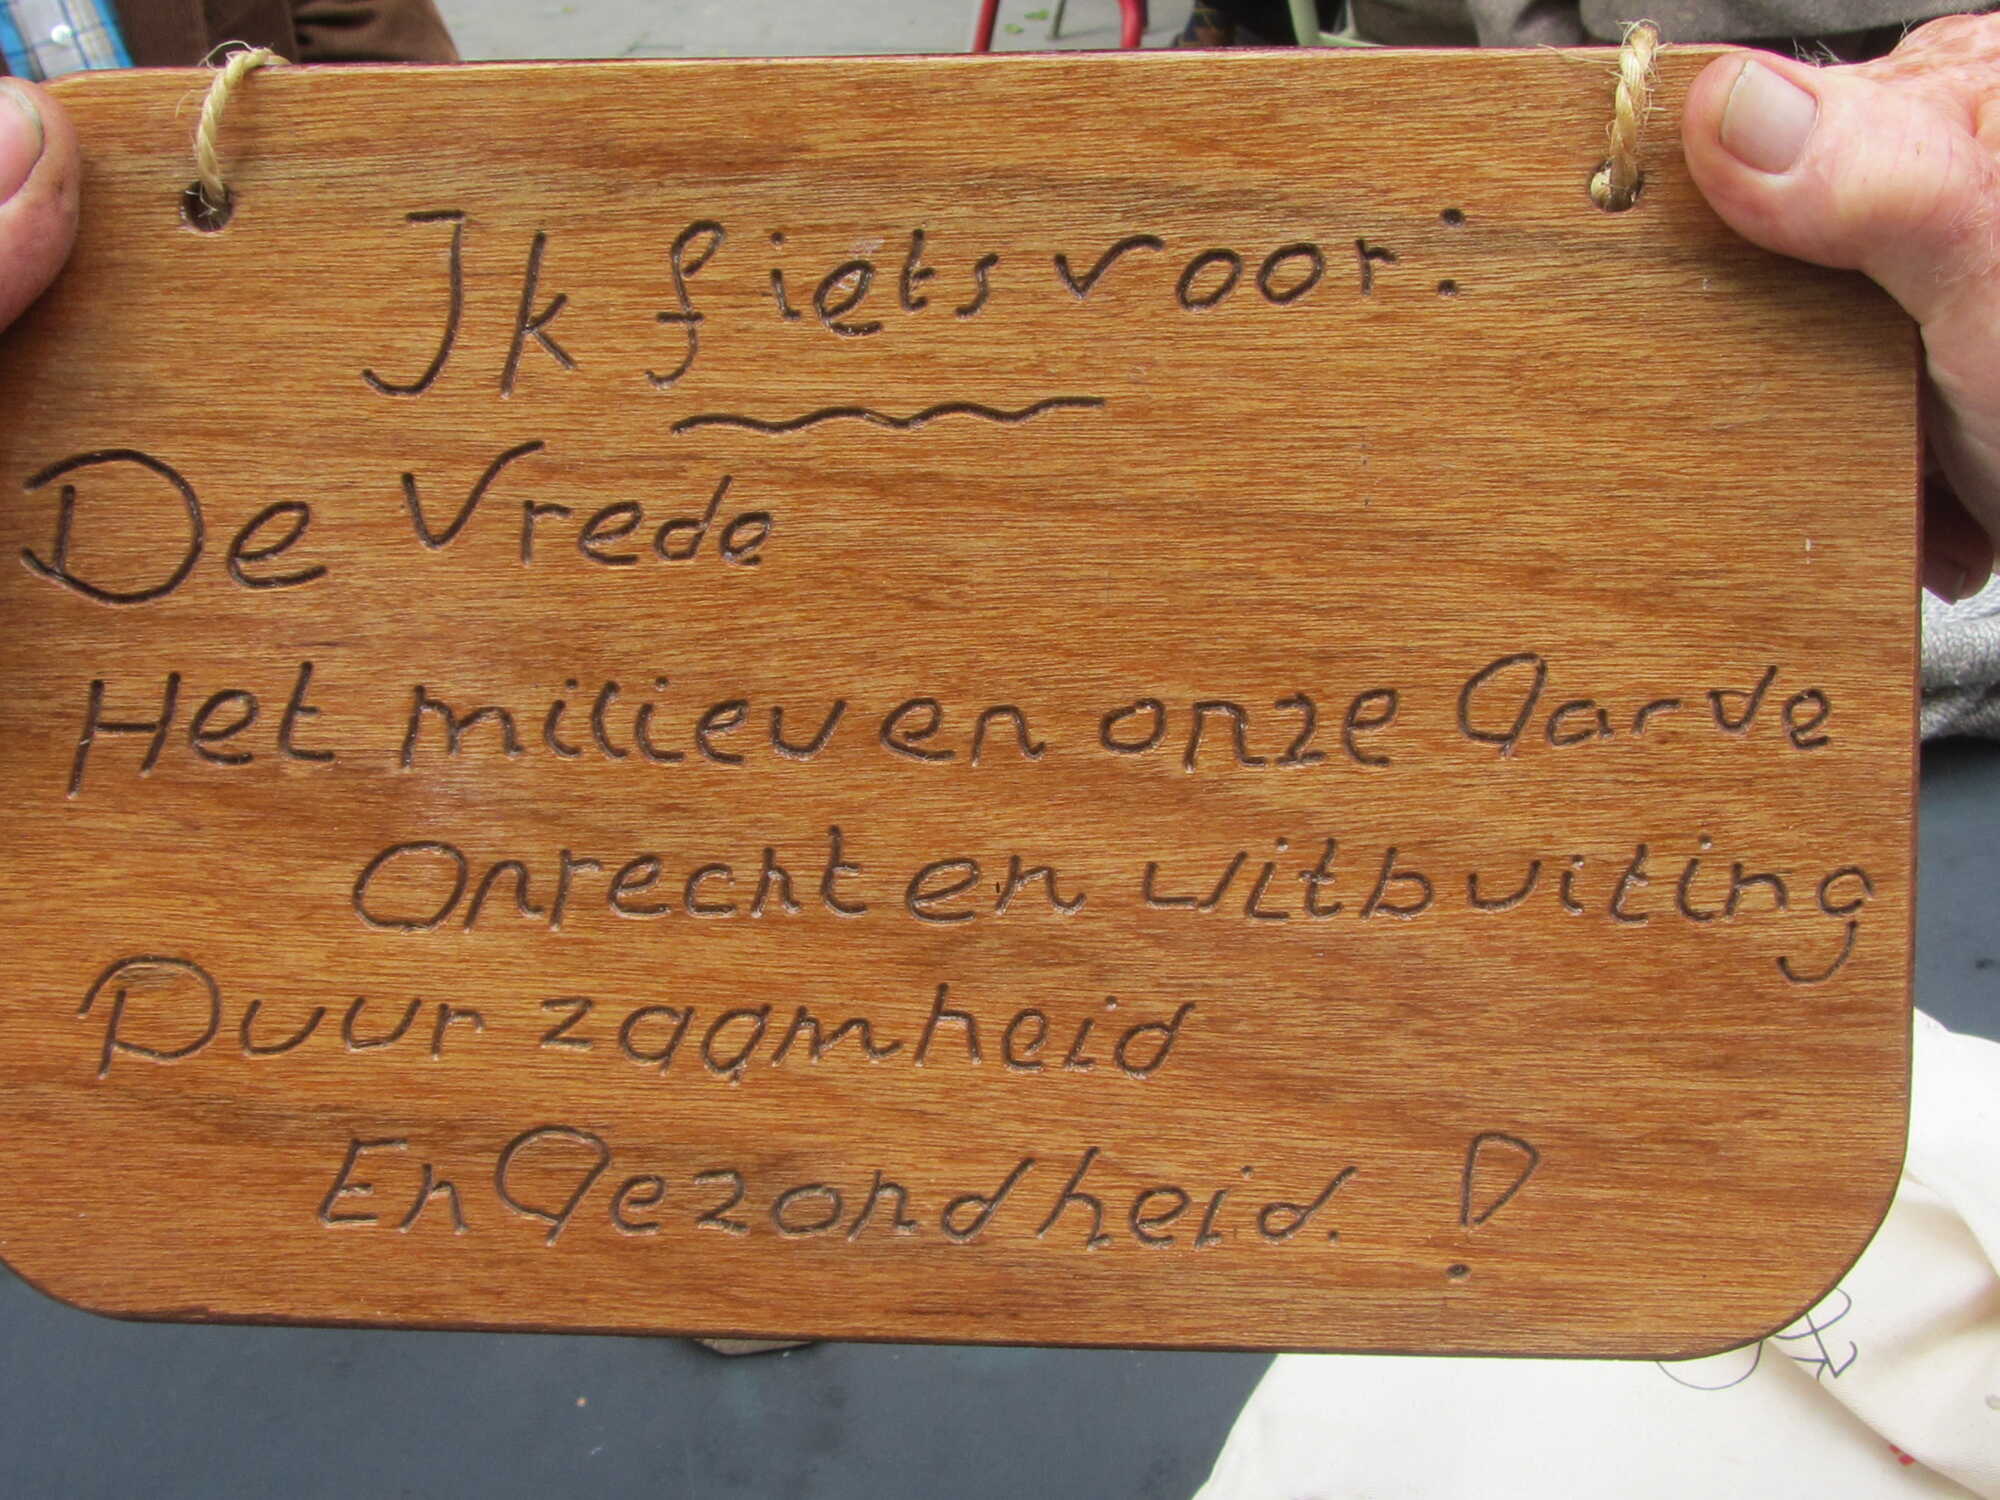 Ik fiets voor:
De Vrede
Het milieu en onze Aarde
Onrecht en uitbuiting
Duurzaamheid
En Gezondheid. !